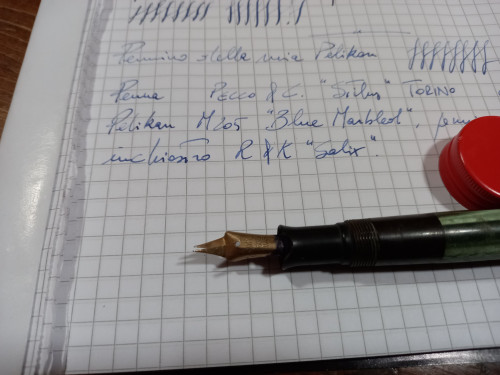 Pennino della mia Pelikan
Penna Pecco & C. "Sirius" TORINO
Pelikan M205 "Blue Marbled",
inchiostro R & K "Salix".